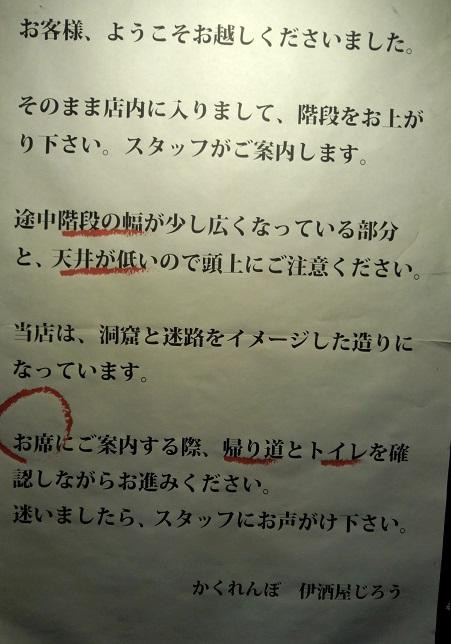 お客様、ようこそお越しくださいました。
そのまま店内に入りまして、階段をお上が
り下さい。スタッフがご案内します。
途中階段の幅が少し広くなっている部分
と、天井が低いので頭上にご注意ください。
当店は、洞窟と迷路をイメージした造りに
なっています。
お席にご案内する際、帰り道とトイレを確
認しながらお進みください。
迷いましたら、スタッフにお声がけ下さい。
かくれんぼ　伊酒屋じろう